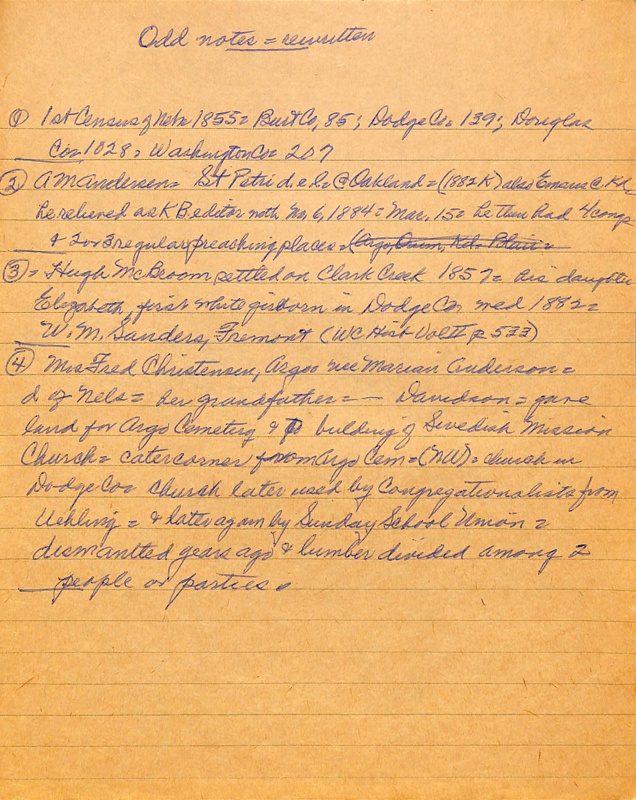 Odd notes = rewritten
① 1st Census of Nebr 1855 = Burt Co, 85; Dodge Co = 139; Douglas
Co = 1028 = Washington Co = 207
② AM Andersen = St Petri d. e. l. = @ Oakland = (1882 K) also Emaus @ Kd,
he relieved as K B editor noth No. 6, 1884 = Mar. 15 = he then had 4 congs
& 2 or 3 regular preaching places = (Argo, Orum, Kd = Blair =
③ = Hugh McBroom settled on Clark Creek 1857 = his daughter
Elizabeth, first white girl born in Dodge Co, med 1882 =
W. M. Sanders, Fremont (WC Hist Vol II p 533)
④ Mrs Fred Christensen, Argo = nee Marian Anderson =
d of Nels = her grandfather = — Davidson = gave
land for Argo Cemetery & to building of Swedish Mission
Church = catercorner from Argo Cem = (NW) = church in
Dodge Co = church later used by Congregationalists from
Uehling = & later again by Sunday School Union =
dismantled years ago & lumber divided among 2
people or parties.